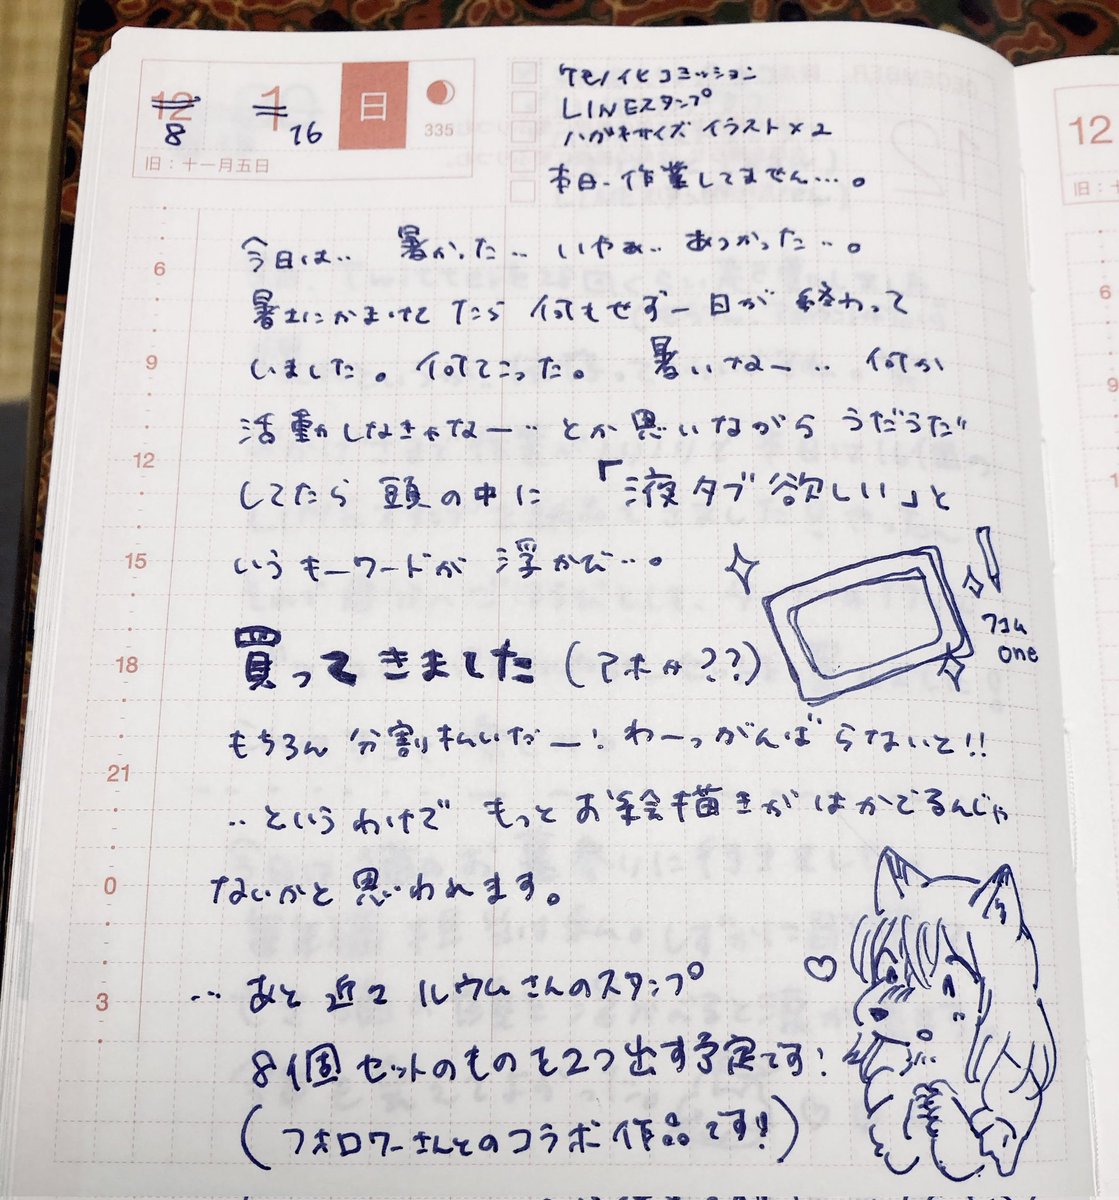 12 1 日
8 16
335
旧：十一月五日
ケモノイヒコミッション
LINEスタンプ
ハガキサイズ イラスト×2
本日、作業してません…。
今日は‥ 暑かった‥ いやぁ‥ あつかった‥。
暑さにかまけてたら 何もせず一日が 終わって
しました。何てこった。 暑いなー‥ 何か
活動しなきゃなー‥ とか思いながら うだうだ
してたら 頭の中に 「液タブ欲しい」と
いうキーワードが 浮かび…。
買ってきました (アホか??)
ワコム
one
もちろん 分割払いだー! わーっがんばらないと!!
‥というわけで もっとお絵描きがはかどるんじゃ
ないかと思われます。
… あと 近々 ルウムさんのスタンプ
8個セットのものを2つ出す予定です!
(フォロワーさんとのコラボ作品です!)
6
9
12
15
18
21
0
3
12
旧：
6
9